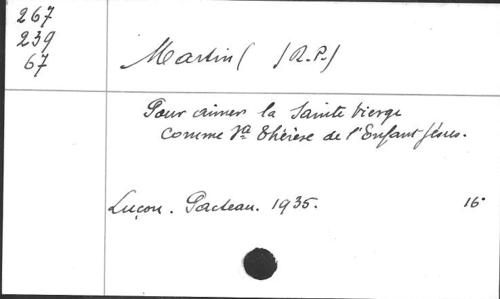 267
239
67
Martin ( (R.P.)
Pour aimer la Sainte Vierge
comme Ste Thérèse de l'Enfant Jésus.
Luçon. Pacteau. 1935. 16°